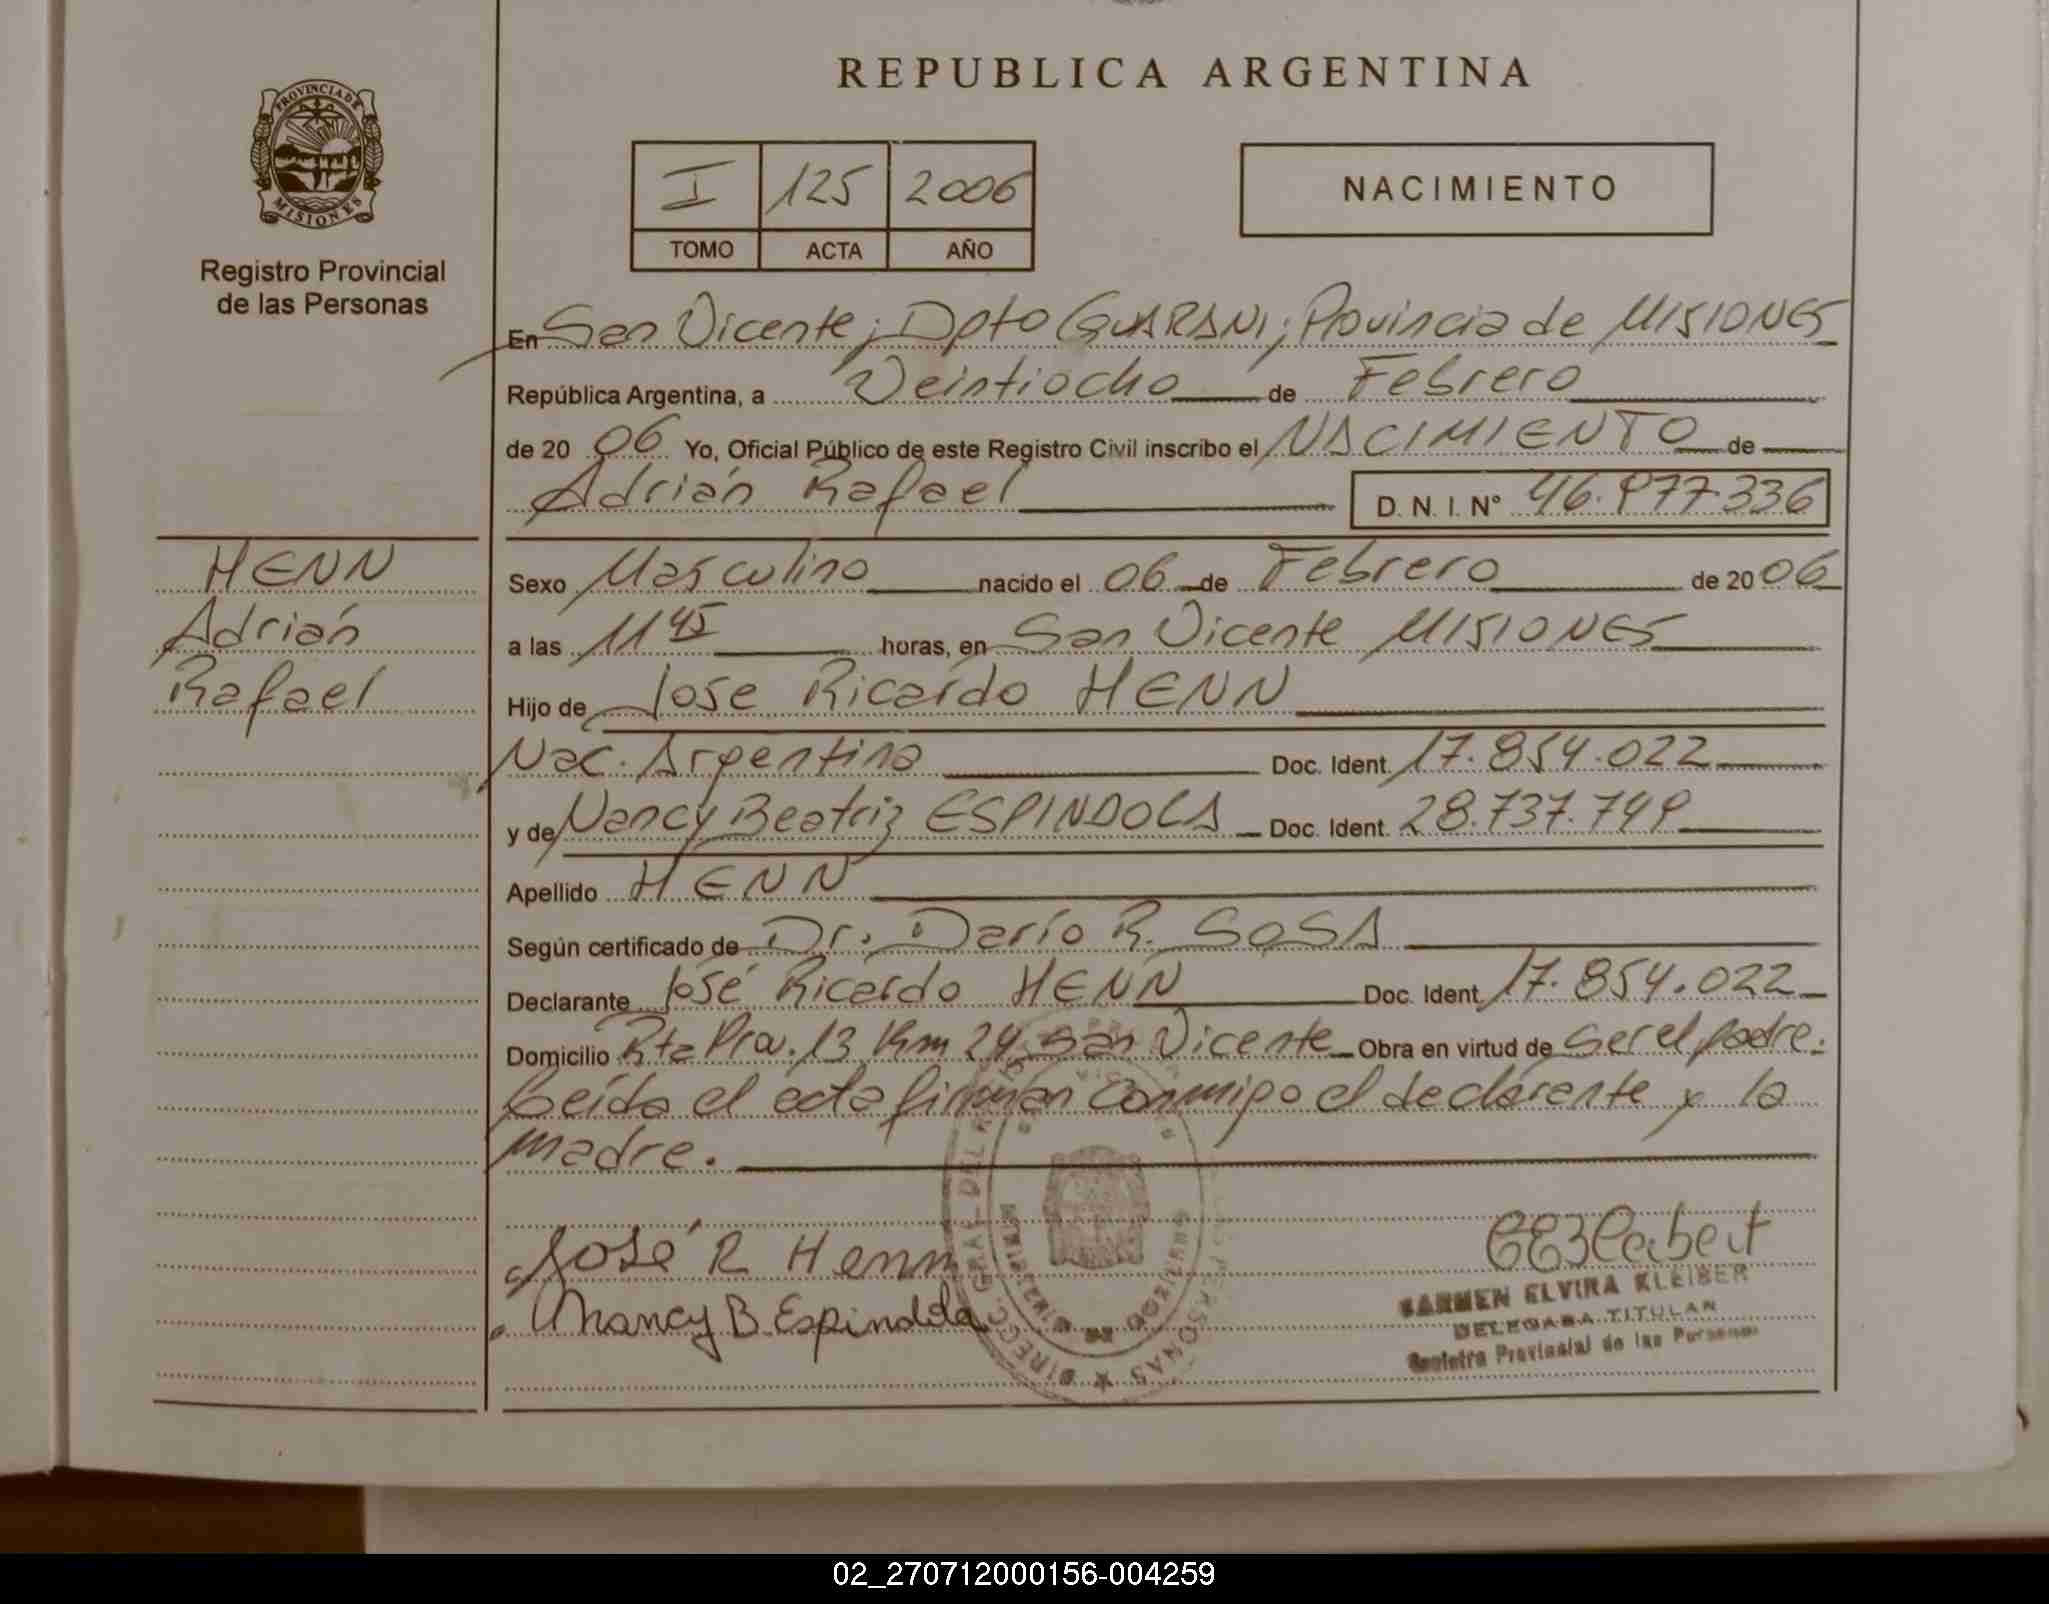 REPUBLICA ARGENTINA
PROVINCIA DE
MISIONES
Registro Provincial
de las Personas
I 125 2006
TOMO ACTA AÑO
NACIMIENTO
En San Vicente; Dpto GUARANI; Provincia de MISIONES
República Argentina, a Veintiocho de Febrero
de 20 06 Yo, Oficial Público de este Registro Civil inscribo el NACIMIENTO de
Adrián Rafael D. N. I. N° 46.977.336
HENN
Adrián
Rafael
Sexo Masculino nacido el 06 de Febrero de 20 06
a las 11 45 horas, en San Vicente MISIONES
Hijo de Jose Ricardo HENN
Nac. Argentina Doc. Ident. 17.854.022
y de Nancy Beatriz ESPINDOLA Doc. Ident. 28.737.749
Apellido HENN
Según certificado de Dr. Darío R. SOSA
Declarante José Ricardo HENN Doc. Ident. 17.854.022
Domicilio Rta Prov. 13 Km 24 San Vicente Obra en virtud de Ser el padre.
Leída el acta firman conmigo el declarante y la
madre.
José R Henn
Nancy B. Espindola
CARMEN ELVIRA KLEIBER
DELEGADA TITULAR
Registro Provincial de las Personas
02_270712000156-004259